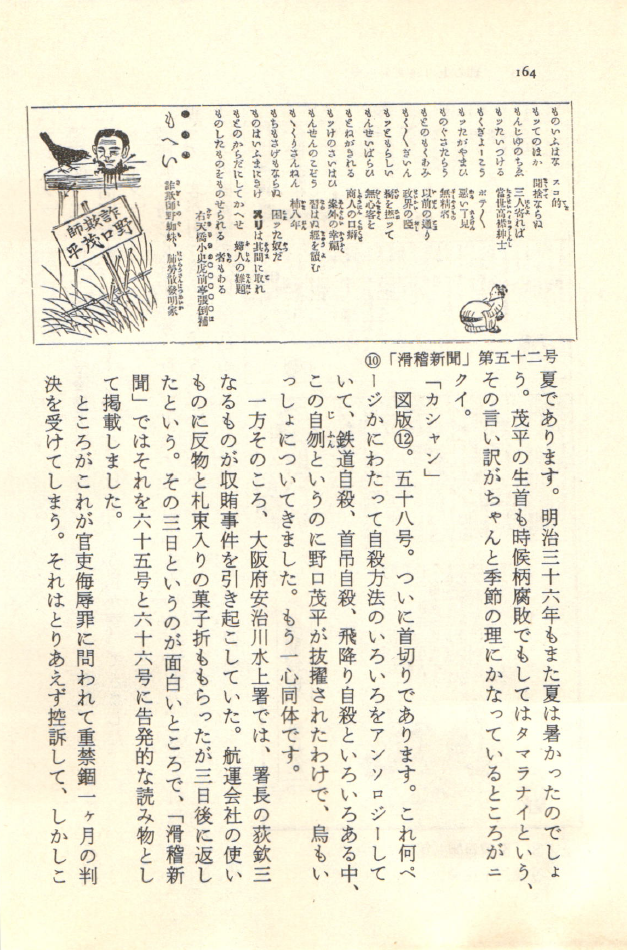 164
ものいふはな スコ的
もッてのほか 聞捨ならぬ
もんじゆのちゑ 三人寄れば
もッたいつける 當世高襟紳士
もくぎょーこう ポテ〱
もッたがやまひ 惡い了見
ものぐさたらう 無精者
もとのもくあみ 以前の通り
も〱〱ぎいん 政界の陸
もッともらしい 鬚を撫って
もんせいばらひ 無心客を
もとねがきれる 商人の口癖
もッけのさいはひ 案外の幸福
もんぜんのこぞう 習はぬ經を讀む
もゝくりさんねん 柿八年
もちもさげもならぬ 困った奴だ
ものはいふまにきけ スリは其間に取れ
もとのからだにしてかへせ 婦人の難題
ものしたものをものせられる 者もある
もへい
詐欺師野口茂平
⑩「滑稽新聞」第五十二号
夏であります。明治三十六年もまた夏は暑かったのでしょ
う。茂平の生首も時候柄腐敗でもしてはタマラナイという、
その言い訳がちゃんと季節の理にかなっているところがニ
クイ。
「カシャン」
図版⑫。五十八号。ついに首切りであります。これ何ペ
ージかにわたって自殺方法のいろいろをアンソロジーして
いて、鉄道自殺、首吊自殺、飛降り自殺といろいろある中、
この自刎というのに野口茂平が抜擢されたわけで、烏もい
っしょについてきました。もう一心同体です。
一方そのころ、大阪府安治川水上署では、署長の荻欽三
なるものが収賄事件を引き起こしていた。航運会社の使い
ものに反物と札束入りの菓子折ももらったが三日後に返し
たという。その三日というのが面白いところで、「滑稽新
聞」ではそれを六十五号と六十六号に告発的な読み物とし
て掲載しました。
ところがこれが官吏侮辱罪に問われて重禁錮一ヶ月の判
決を受けてしまう。それはとりあえず控訴して、しかしこ